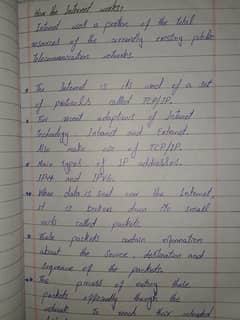 How the Internet works:
Internet uses a portion of the total
resources of the currently existing public
Telecommunication networks.
The Internet is its used of a set
of protocols called TCP/IP.
The most adaptions of Internet
Technology, Intranet and Extranet.
Also make use of TCP/IP.
Main types of IP addresses.
IPv4 and IPv6.
When data is sent over the Internet,
it is broken down into small
units called packets.
These packets contain information
about the source, destination and
sequence of the packets.
The process of routing these
packets efficiently through the
to reach their intended